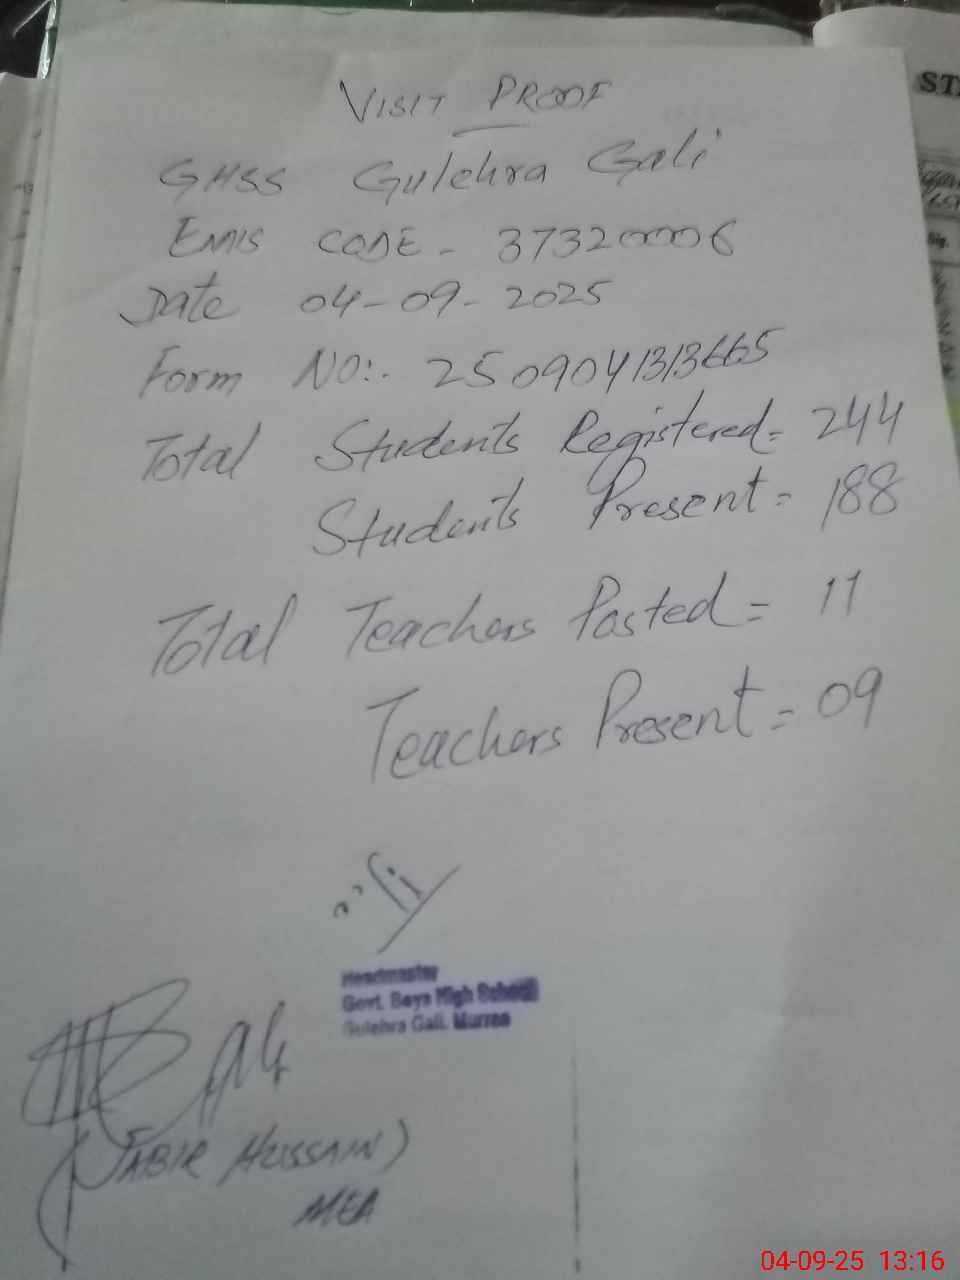 VISIT PROOF
GHSS Gulehra Gali
EMIS CODE - 37320006
Date 04-09-2025
Form NO:. 2509041313665
Total Students Registered = 244
Students Present = 188
Total Teachers Posted = 11
Teachers Present = 09
Headmaster
Govt. Boys High School
Gulehra Gali, Murree
(JABIR HUSSAIN)
MEA
ST
04-09-25 13:16